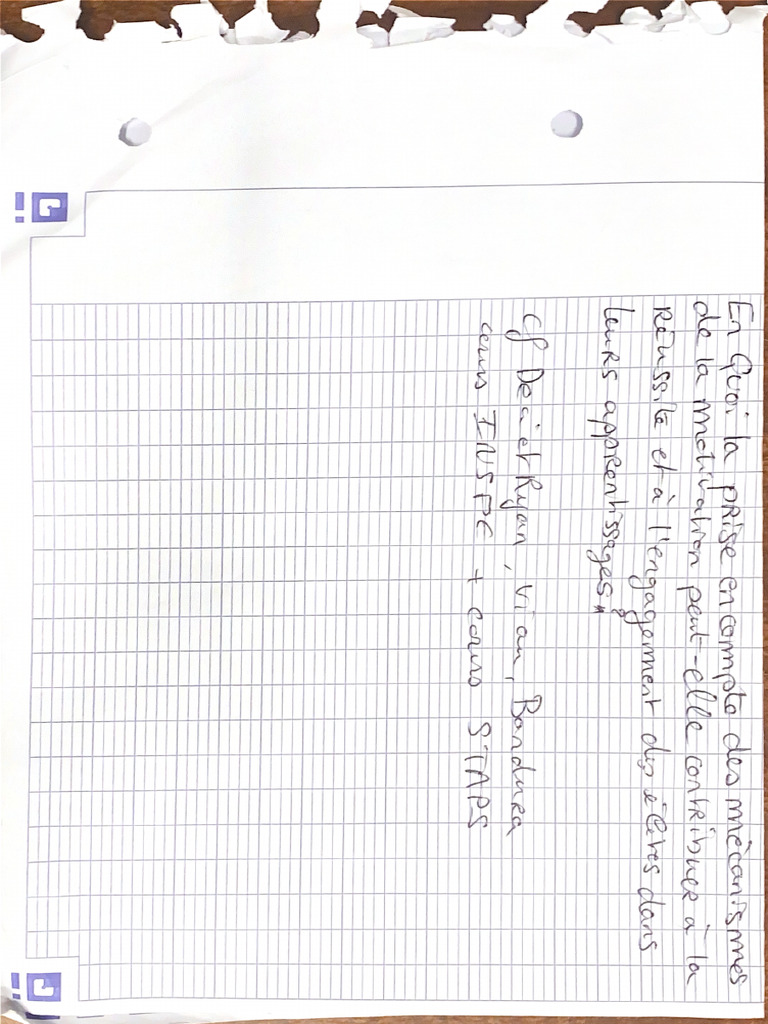 En Quoi la prise en compte des mécanismes
de la motivation peut-elle contribuer à la
Réussite et à l'engagement des élèves dans
leurs apprentissages?
Cf Deci et Ryan, Viau, Bandura
cours INSPE + cours STAPS